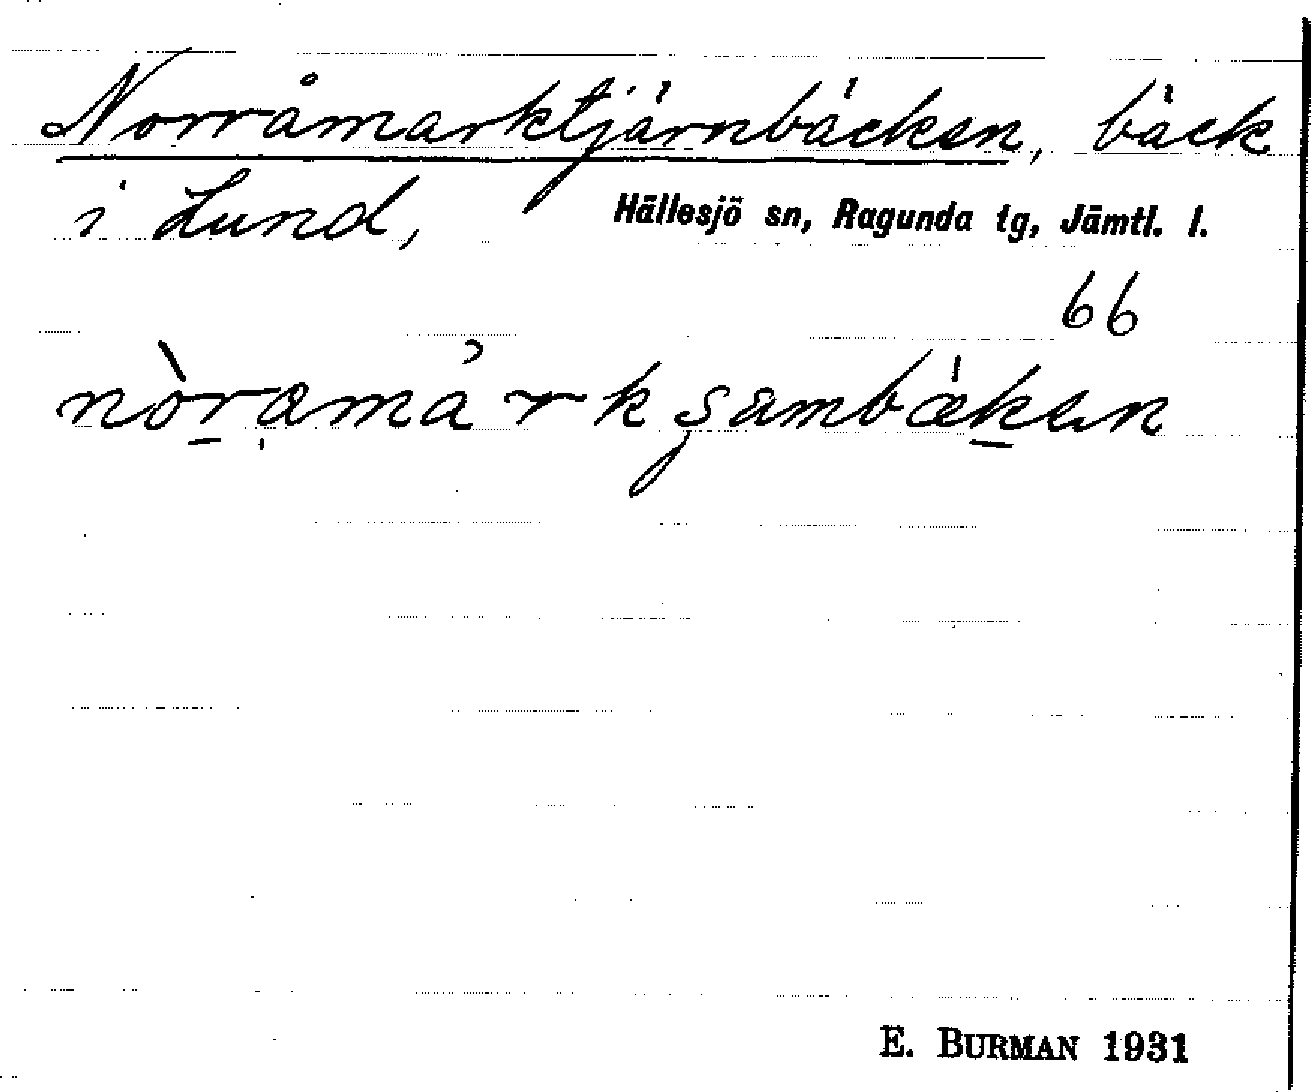 Norråmarktjärnbäcken, bäck
i Lund, Hällesjö sn, Ragunda tg, Jämtl. l.
66
E. BURMAN 1931